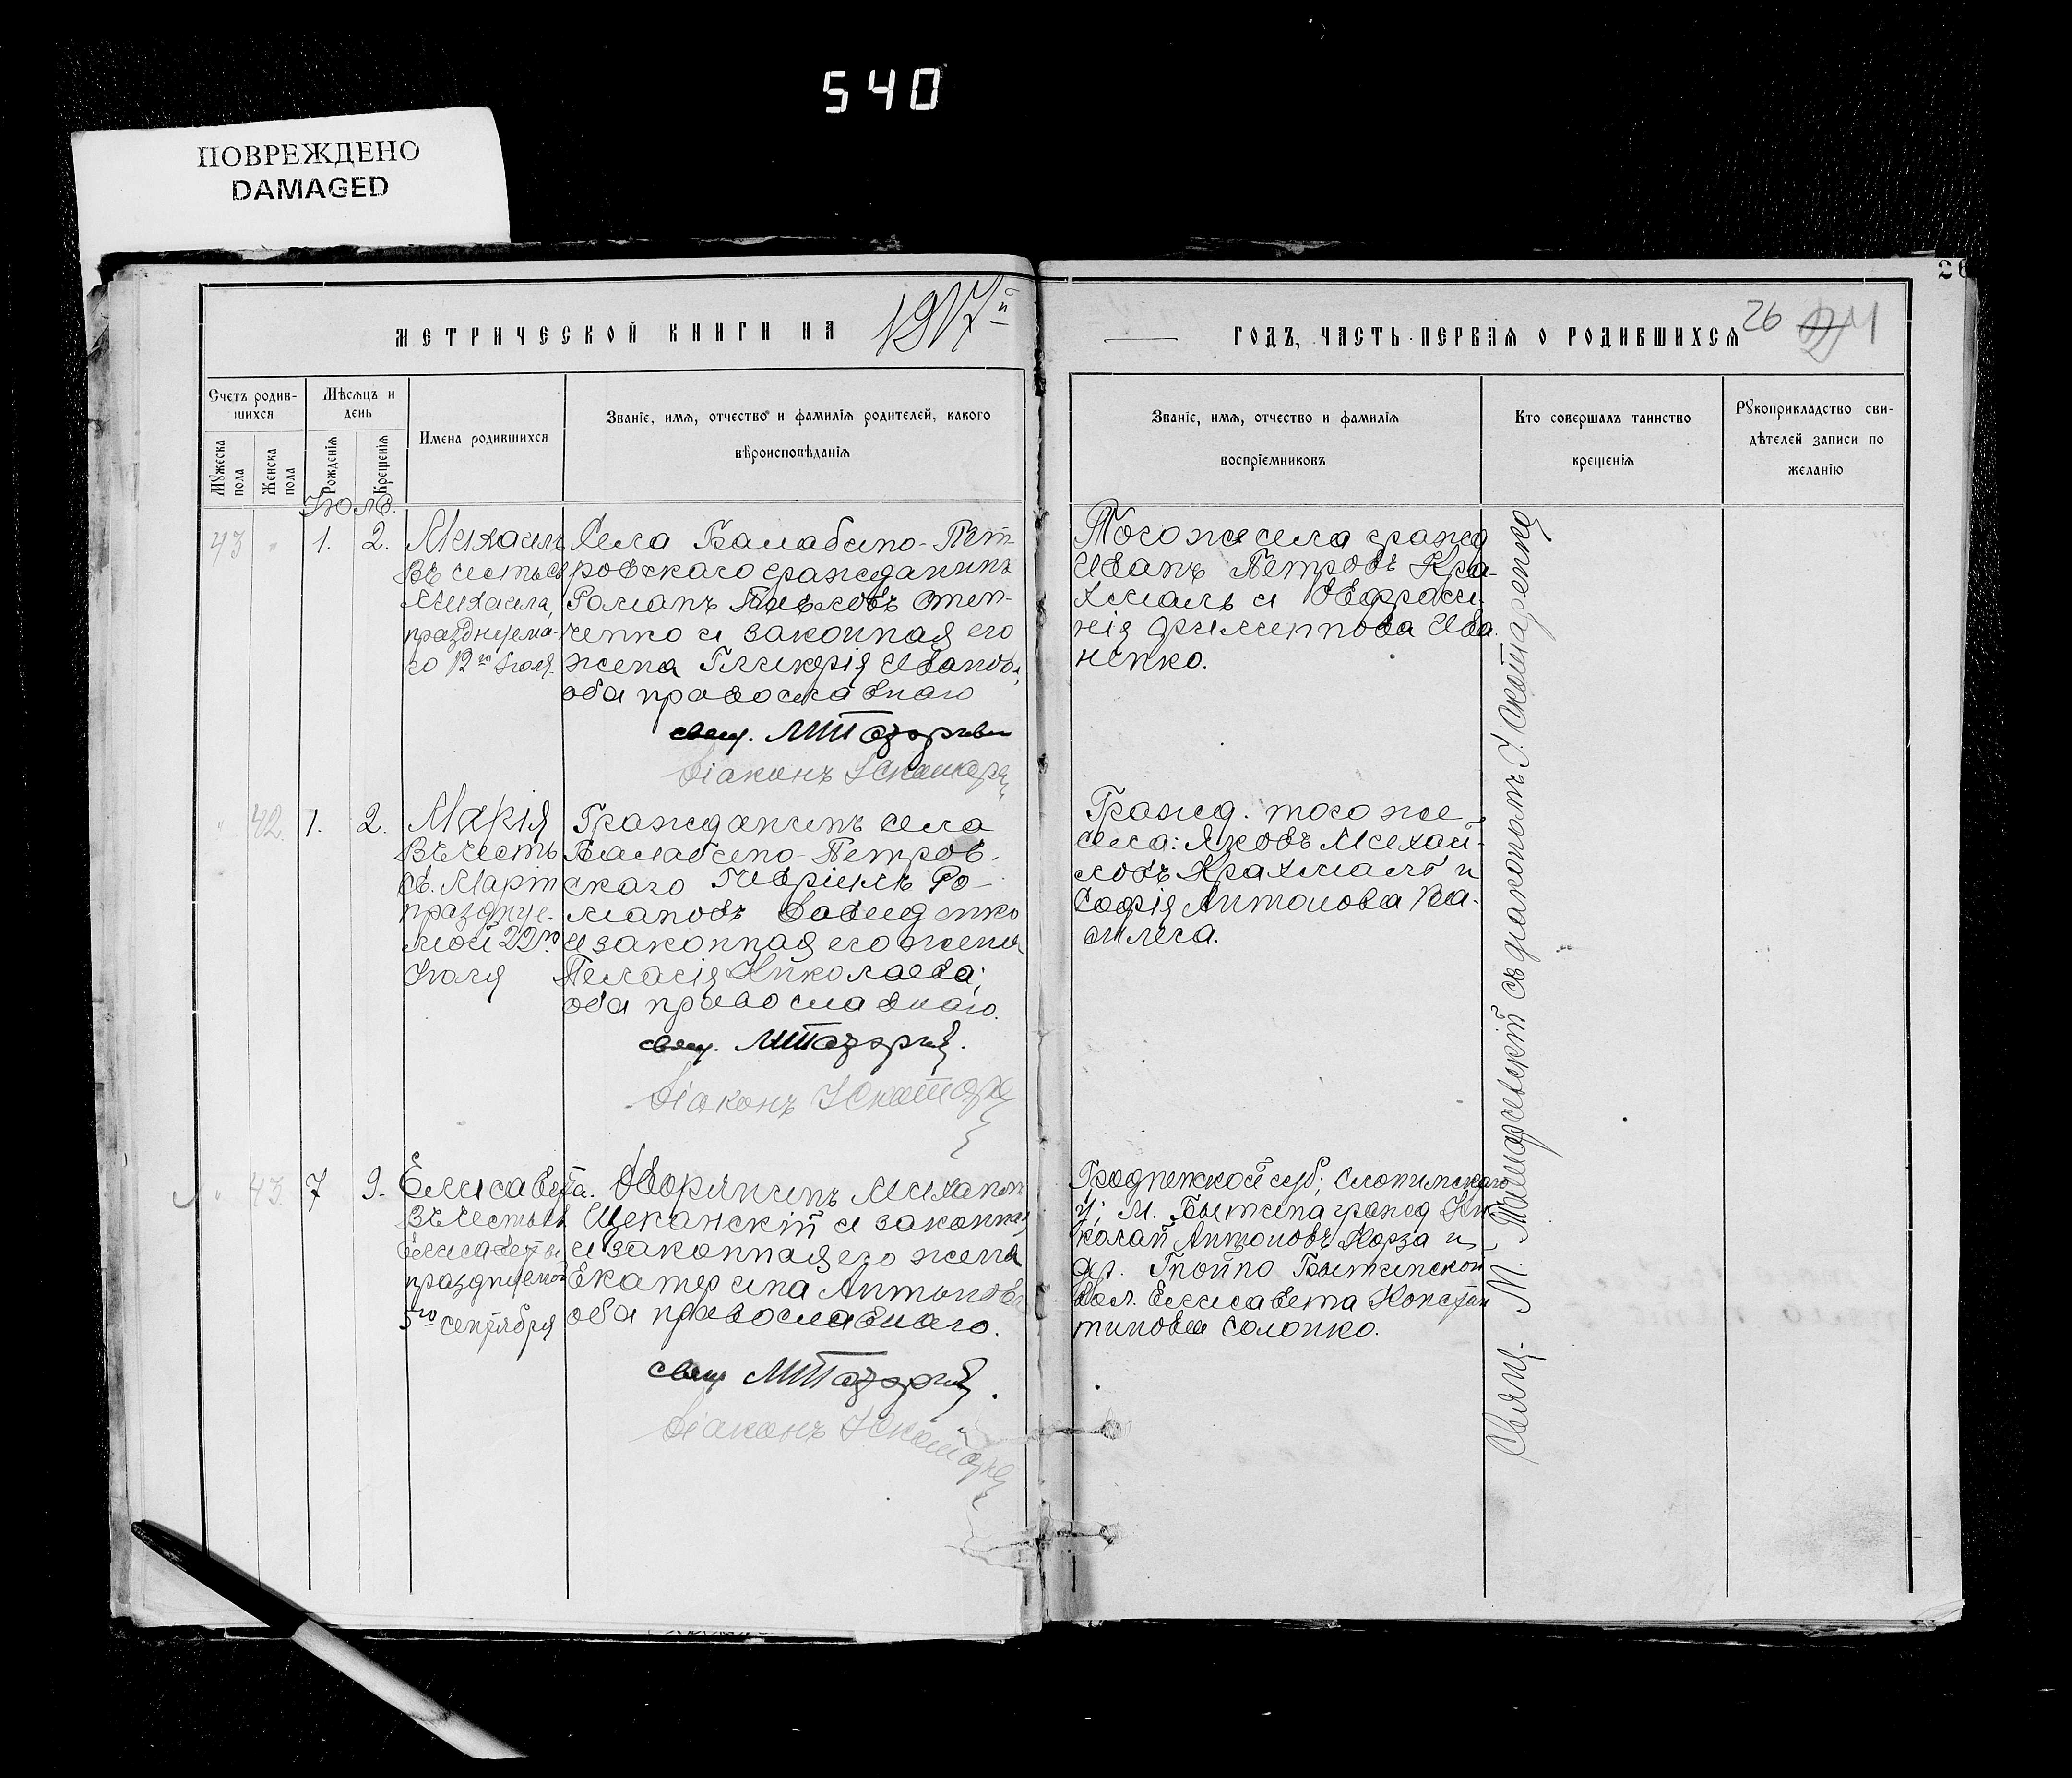 540
ПОВРЕЖДЕНО
DAMAGED
26
МЕТРИЧЕСКОЙ КНИГИ НА 1917й
ГОДЪ, ЧАСТЬ ПЕРВАЯ О РОДИВШИХСЯ
26
Счетъ родив-
шихся
Мѣсяцъ и
день
Мужеска
пола
Женска
пола
Рожденія
Крещенія
Имена родившихся
Званіе, имя, отчество и фамилія родителей, какого
вѣроисповѣданія
Званіе, имя, отчество и фамилія
воспріемниковъ
Кто совершалъ таинство
крещенія
Рукоприкладство сви-
дѣтелей записи по
желанію
Іюль.
43 " 1. 2.
Михаилъ
въ честь св
Михаила,
празднуема-
го 12го Іюля.
Села Балабино-Пет-
ровскаго гражданинъ
Романъ
ченко и законная его
жена Гликерія Иванова,
оба православнаго
свящ.
Діаконъ І Скитаре
Того же села гражд
Иванъ Петровъ Кра-
хмаль и Евфроси-
нія Филиппова Ива
ненко.
" 42. 1. 2.
Марія
Въ честь
св. Март
праздnуе-
мой 22го
Іюля
Гражданинъ села
Балабино-Петров-
скаго Гавріилъ Ро-
мановъ Давиденко
и законная его жена
Пелагія Николаева;
оба православнаго.
свящ.
Діаконъ І Скитаре
Гражд. того же
села: Яковъ Михай-
ловъ Крахмаль и
Софія Антонова Ва-
" 43. 7 9.
Елисавета.
въ честь св
Елисаветы
празднуемой
5го сентября
Дворянинъ Михаилъ
Щеканскій и законная
и законная его жена
Екатерина Антонова
оба православнаго.
свящ
Діаконъ І Скитаре
Гродненской губ; Слонимскаго
у; м. Бытена гражд Ни-
колай Антоновъ Корза и
др. Гнойно Бытенской
Вол. Елисавета Констан
тинова Солонко.
Свящ. М. съ діакономъ І. Скитаренко